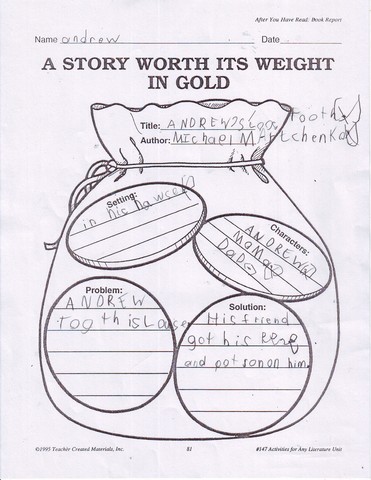 After You Have Read: Book Report
Name andrew Date
A STORY WORTH ITS WEIGHT
IN GOLD
Title: ANDREW?S Loos Tooth
Author: Michael
Setting:
in his
Characters:
ANDREW
MaMa
DaDa
Problem:
ANDREW
Tooth is Loose
Solution:
His friend
got his
and pot son on him.
©1995 Teacher Created Materials, Inc. 81 #147 Activities for Any Literature Unit